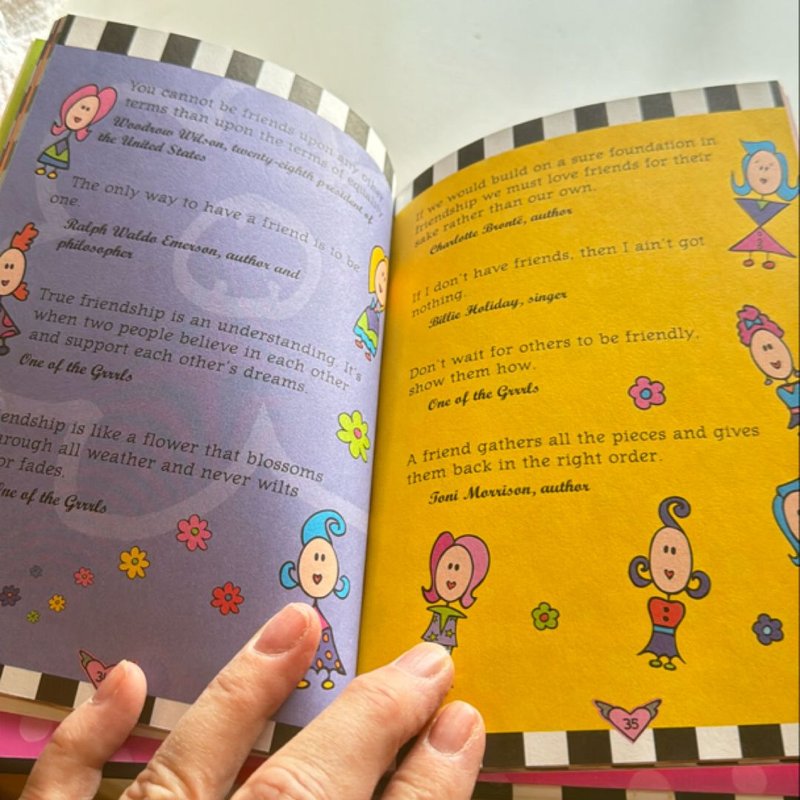 You cannot be friends upon any other
terms than upon the terms of equality
Woodrow Wilson, twenty-eighth president of
the United States
The only way to have a friend is to be
one.
Ralph Waldo Emerson, author and
philosopher
True friendship is an understanding. It's
when two people believe in each other
and support each other's dreams.
One of the Grrrls
endship is like a flower that blossoms
rough all weather and never wilts
or fades.
One of the Grrrls
If we would build on a sure foundation in
friendship we must love friends for their
sake rather than our own.
Charlotte Brontë, author
If I don't have friends, then I ain't got
nothing.
Billie Holiday, singer
Don't wait for others to be friendly,
show them how.
One of the Grrrls
A friend gathers all the pieces and gives
them back in the right order.
Toni Morrison, author
35